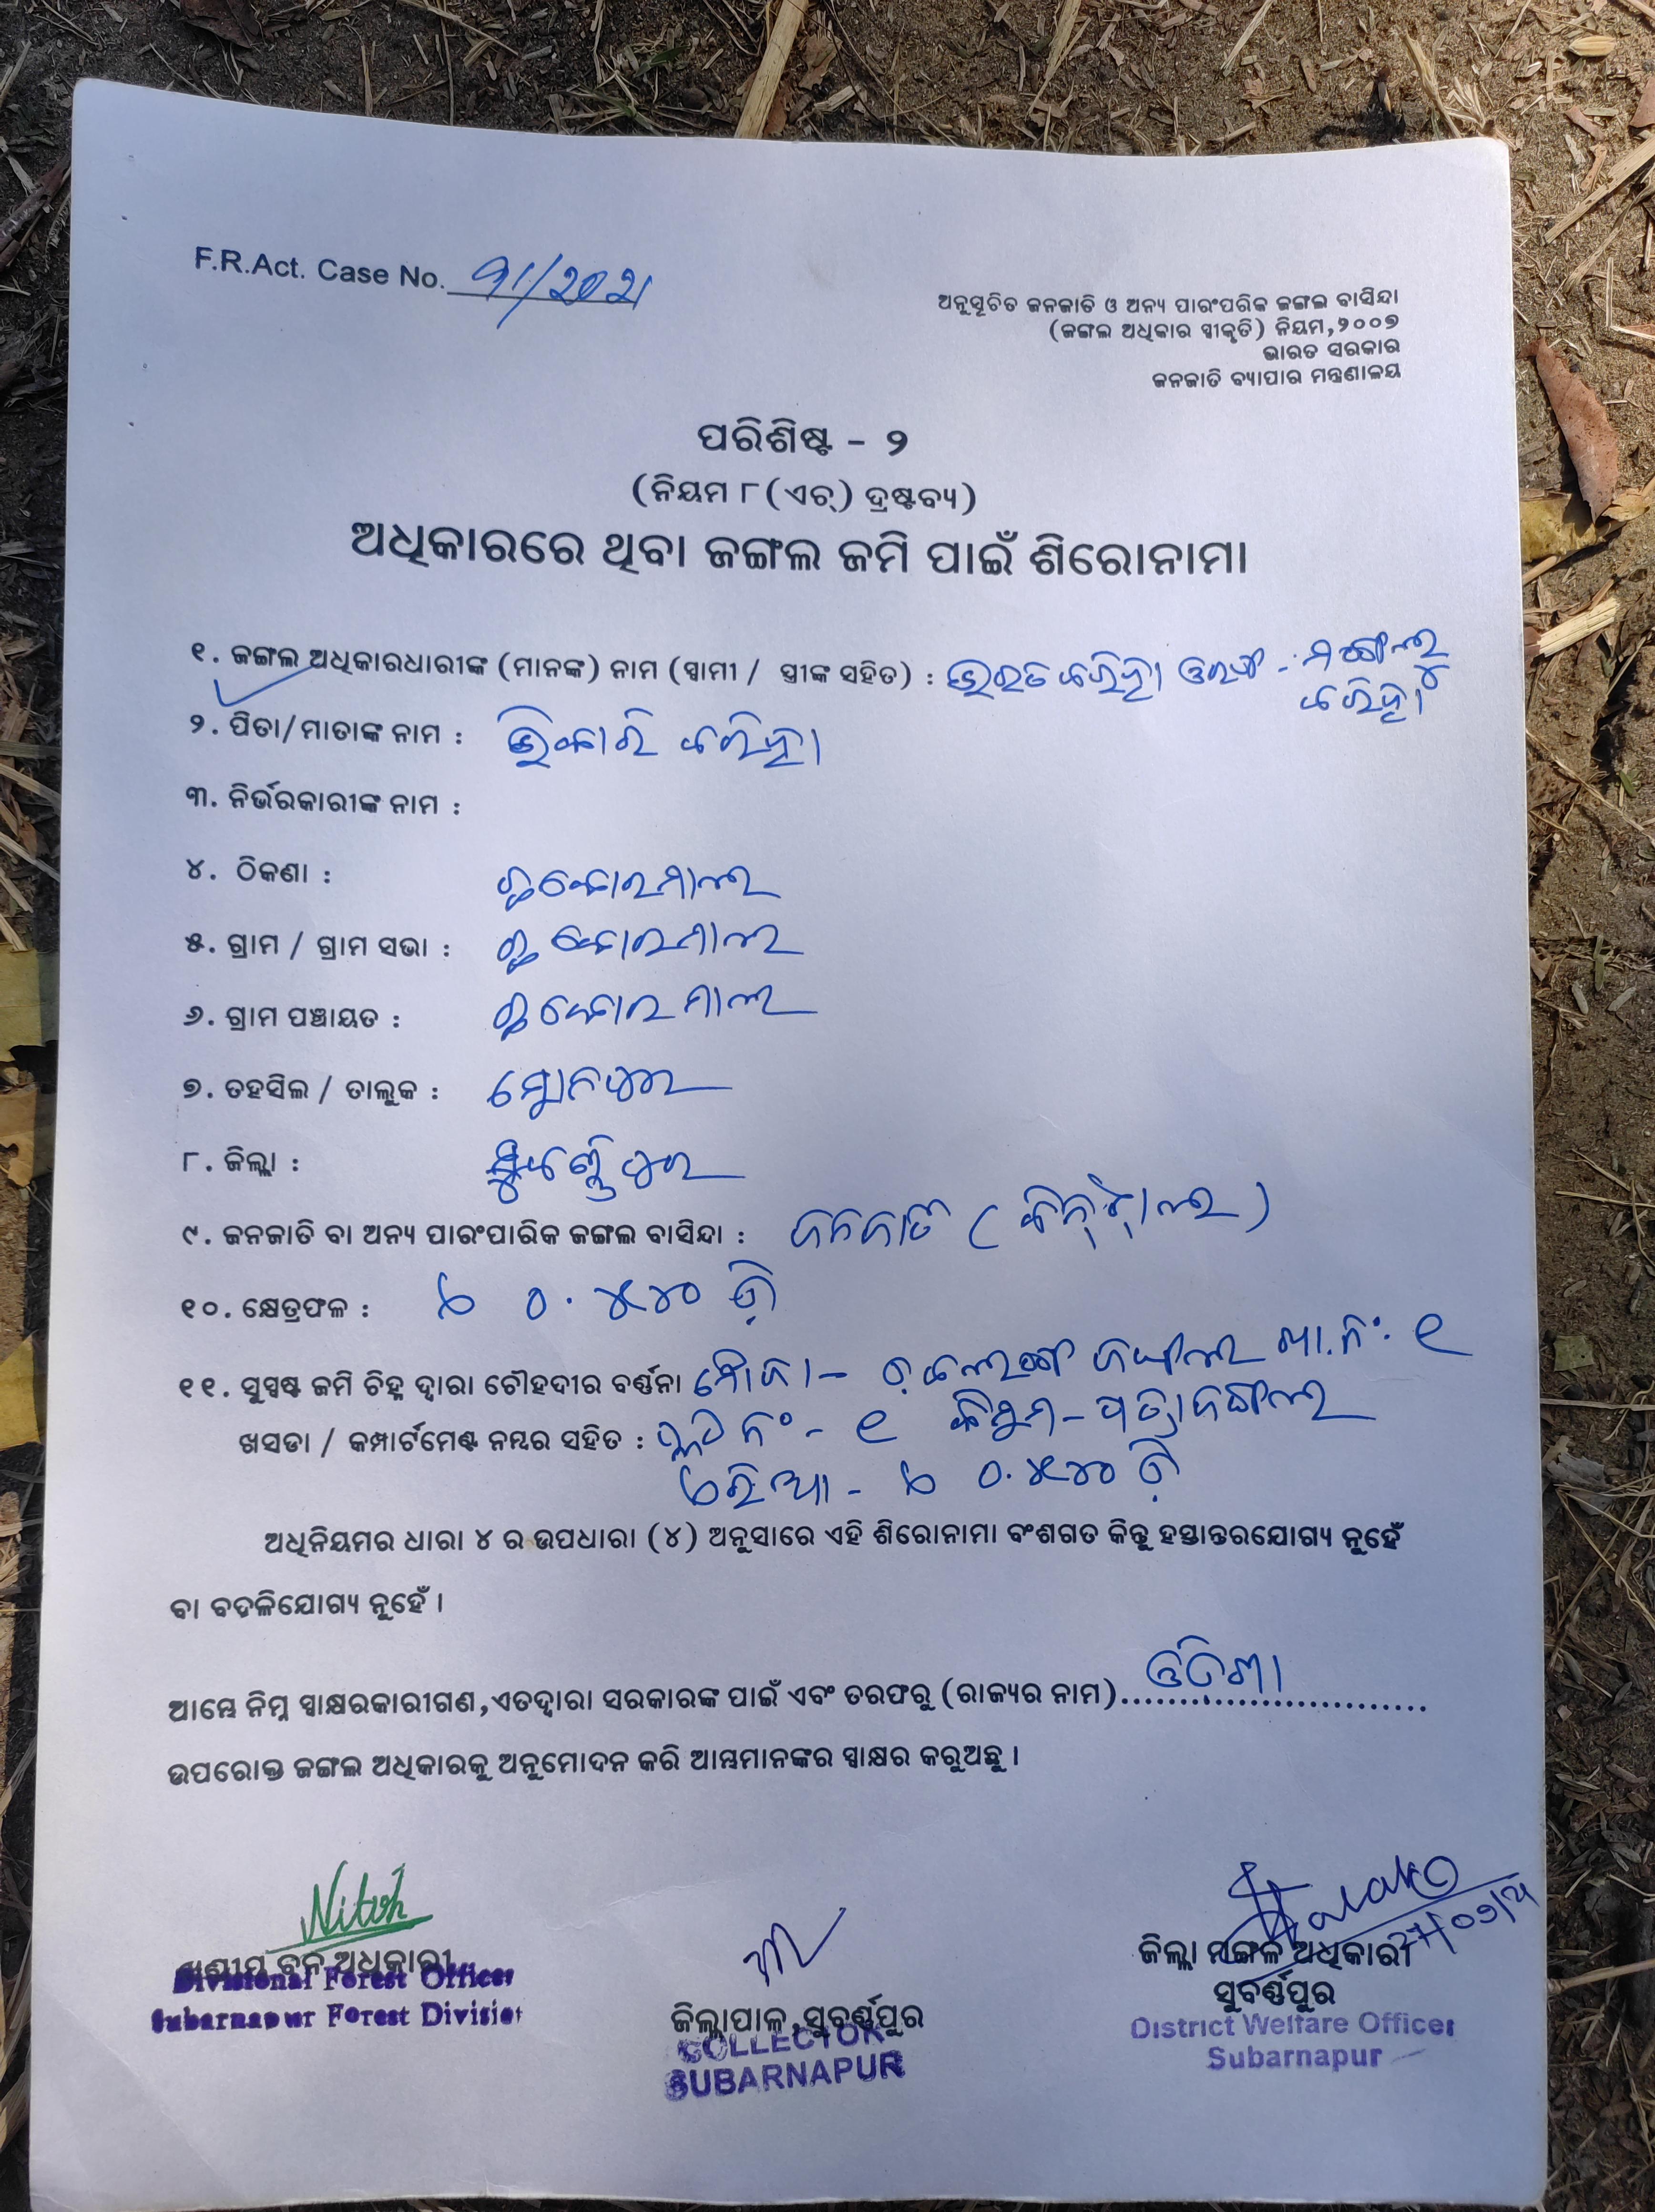 F.R.Act. Case No. 91/2021
ଅନୁସୂଚିତ ଜନଜାତି ଓ ଅନ୍ୟ ପାରଂପରିକ ଜଙ୍ଗଲ ବାସିନ୍ଦା
(ଜଙ୍ଗଲ ଅଧିକାର ସ୍ୱୀକୃତି) ନିୟମ,୨୦୦୭
ଭାରତ ସରକାର
ଜନଜାତି ବ୍ୟାପାର ମନ୍ତ୍ରଣାଳୟ
ପରିଶିଷ୍ଟ - ୨
(ନିୟମ ୮(ଏଚ୍) ଦ୍ରଷ୍ଟବ୍ୟ)
ଅଧିକାରରେ ଥିବା ଜଙ୍ଗଲ ଜମି ପାଇଁ ଶିରୋନାମା
୧. ଜଙ୍ଗଲ ଅଧିକାରଧାରୀଙ୍କ (ମାନଙ୍କ) ନାମ (ସ୍ୱାମୀ / ସ୍ତ୍ରୀଙ୍କ ସହିତ) : ଭରତ ବରିହା
ବରିହା
୨. ପିତା/ମାତାଙ୍କ ନାମ : ଭିକାରି ବରିହା
୩. ନିର୍ଭରକାରୀଙ୍କ ନାମ :
୪. ଠିକଣା :
୫. ଗ୍ରାମ / ଗ୍ରାମ ସଭା :
୬. ଗ୍ରାମ ପଞ୍ଚାୟତ :
୭. ତହସିଲ / ତାଲୁକ : ସୋନପୁର
୮. ଜିଲ୍ଲା : ସୁବର୍ଣ୍ଣପୁର
୯. ଜନଜାତି ବା ଅନ୍ୟ ପାରଂପାରିକ ଜଙ୍ଗଲ ବାସିନ୍ଦା : ଜନଜାତି (ବିନ୍ଝାଲ)
୧୦. କ୍ଷେତ୍ରଫଳ : ଏ ୦.୪୫୪୦ ଡ଼ି
୧୧. ସୁସ୍ପଷ୍ଟ ଜମି ଚିହ୍ନ ଦ୍ୱାରା ଚୌହଦୀର ବର୍ଣ୍ଣନା ମୌଜା - ଜଙ୍ଗଲ ଖା.ନଂ. ୧
ଖସଡା / କମ୍ପାର୍ଟମେଣ୍ଟ ନମ୍ବର ସହିତ : ପ୍ଲଟ ନଂ - ୧ କିସମ - ପତ୍ରାଜଙ୍ଗଲ
ଏରିଆ - ଏ ୦.୪୫୪୦ ଡ଼ି
ଅଧିନିୟମର ଧାରା ୪ ର ଉପଧାରା (୪) ଅନୁସାରେ ଏହି ଶିରୋନାମା ବଂଶଗତ କିନ୍ତୁ ହସ୍ତାନ୍ତରଯୋଗ୍ୟ ନୁହେଁ
ବା ବଦଳିଯୋଗ୍ୟ ନୁହେଁ ।
ଆମ୍ଭେ ନିମ୍ନ ସ୍ୱାକ୍ଷରକାରୀଗଣ,ଏତଦ୍ୱାରା ସରକାରଙ୍କ ପାଇଁ ଏବଂ ତରଫରୁ (ରାଜ୍ୟର ନାମ)....ଓଡିଶା....
ଉପରୋକ୍ତ ଜଙ୍ଗଲ ଅଧିକାରକୁ ଅନୁମୋଦନ କରି ଆମ୍ଭମାନଙ୍କର ସ୍ୱାକ୍ଷର କରୁଅଛୁ ।
ଖଣ୍ଡୀୟ ବନ ଅଧିକାରୀ
Divisional Forest Officer
Subarnapur Forest Division
ଜିଲ୍ଲାପାଳ,ସୁବର୍ଣ୍ଣପୁର
COLLECTOR
SUBARNAPUR
ଜିଲ୍ଲା ମଙ୍ଗଳ ଅଧିକାରୀ
ସୁବର୍ଣ୍ଣପୁର
District Welfare Officer
Subarnapur